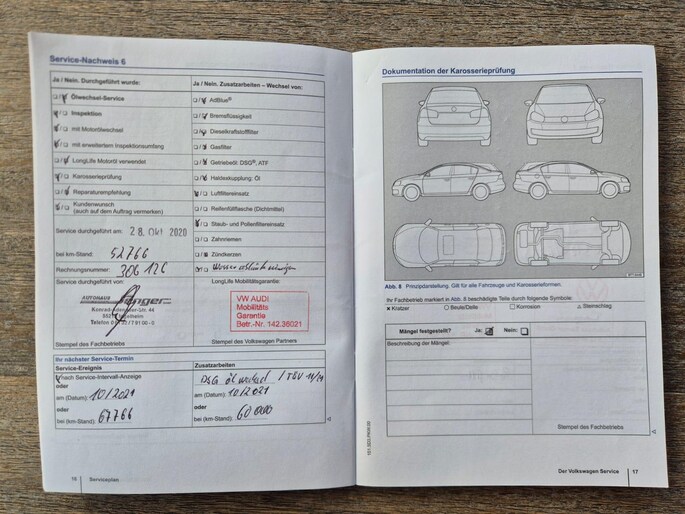 Service-Nachweis 6
Ja / Nein. Durchgeführt wurde:
Ölwechsel-Service
Inspektion
mit Motorölwechsel
mit erweitertem Inspektionsumfang
LongLife Motoröl verwendet
Karosserieprüfung
Reparaturempfehlung
Kundenwunsch
(auch auf dem Auftrag vermerken)
Service durchgeführt am: 28. Okt 2020
bei km-Stand: 52766
Rechnungsnummer: 306126
Service durchgeführt von:
AUTOHAUS
Stempel des Fachbetriebs
Ja / Nein. Zusatzarbeiten – Wechsel von:
AdBlue®
Bremsflüssigkeit
Dieselkraftstofffilter
Gasfilter
Getriebeöl: DSG®, ATF
Haldexkupplung: Öl
Luftfiltereinsatz
Reifenfüllflasche (Dichtmittel)
Staub- und Pollenfiltereinsatz
Zahnriemen
Zündkerzen
LongLife Mobilitätsgarantie:
VW AUDI
Mobilitäts
Garantie
Betr.-Nr. 142.36021
Stempel des Volkswagen Partners
Ihr nächster Service-Termin
Service-Ereignis
nach Service-Intervall-Anzeige
oder
am (Datum): 10/2021
oder
bei (km-Stand): 67766
Zusatzarbeiten
DSG Öl
am (Datum): 10/2021
oder
bei (km-Stand): 60 000
16 Serviceplan
Dokumentation der Karosserieprüfung
Abb. 8 Prinzipdarstellung. Gilt für alle Fahrzeuge und Karosserieformen.
Ihr Fachbetrieb markiert in Abb. 8 beschädigte Teile durch folgende Symbole:
× Kratzer ○ Beule/Delle □ Korrosion △ Steinschlag
Mängel festgestellt? Ja: Nein:
Beschreibung der Mängel:
Stempel des Fachbetriebs
Der Volkswagen Service 17